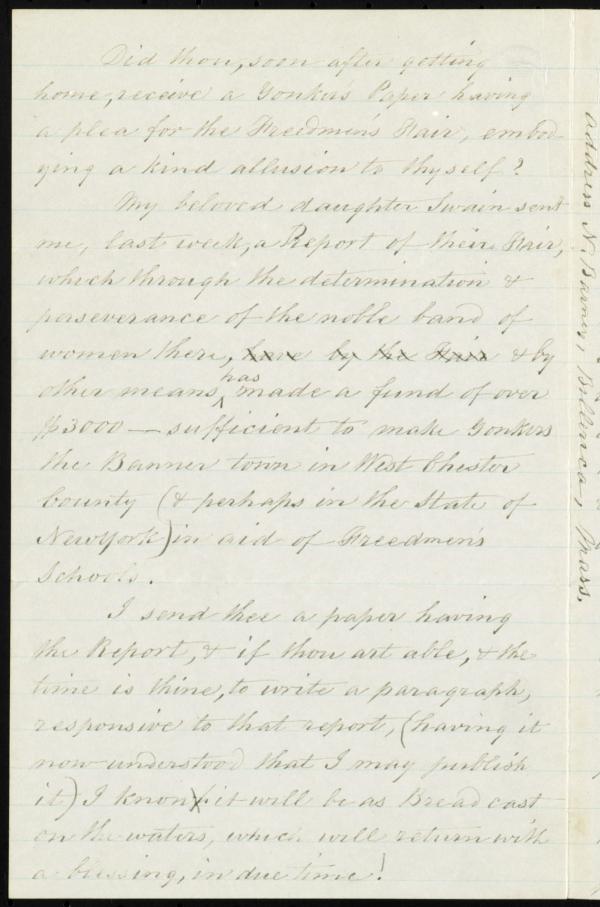 Did thou, soon after getting
home, receive a Yonkers Paper having
a plea for the Freedmen's Fair, embod-
ying a kind allusion to thyself?
My beloved daughter Swain sent
me, last week, a Report of their Fair,
which through the determination &
perseverance of the noble band of
women there, have by the Fair & by
other means has made a fund of over
$3000 — sufficient to make Yonkers
the Banner town in West Chester
County (& perhaps in the State of
New York) in aid of Freedmen's
Schools.
I send thee a paper having
the Report, & if thou art able, & the
time is thine, to write a paragraph,
responsive to that report, (having it
now understood that I may publish
it) I know it will be as Bread cast
on the waters, which will return with
a blessing, in due time!
address N. Barney, Billerica, Mass.